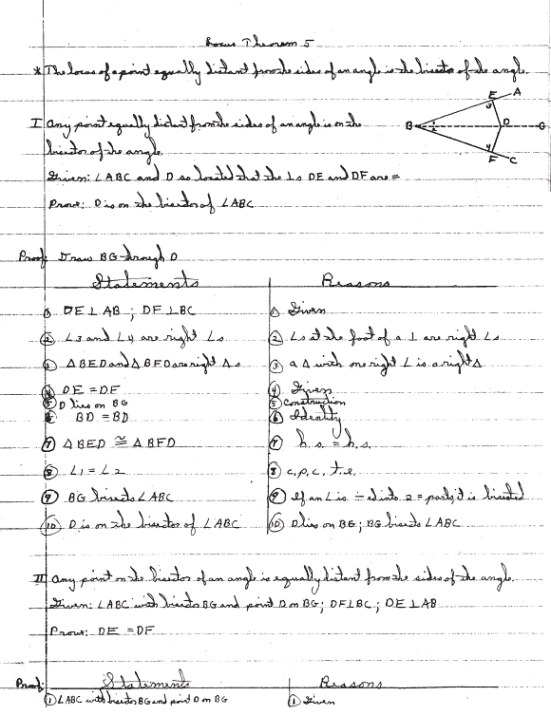 Locus Theorem 5
* The locus of a point equally distant from the sides of an angle is the bisector of the angle.
E A
I Any point equally distant from the sides of an angle is on the
B 1 2 3 D G
bisector of the angle.
4 F C
Given: ∠ABC and D so located that the ⊥s DE and DF are =
Prove: D is on the bisector of ∠ABC
Proof: Draw BG through D
Statements Reasons
① DE ⊥ AB ; DF ⊥ BC ① Given
② ∠3 and ∠4 are right ∠s ② ∠s at the foot of a ⊥ are right ∠s
③ △BED and △BFD are right △s ③ a △ with one right ∠ is a right △
④ DE = DF ④ Given
⑤ D lies on BG ⑤ Construction
⑥ BD = BD ⑥ Identity
⑦ △BED ≅ △BFD ⑦ h.s. = h.s.
⑧ ∠1 = ∠2 ⑧ c.p.c.t.e.
⑨ BG bisects ∠ABC ⑨ If an ∠ is ÷d into 2 = parts, it is bisected
⑩ D is on the bisector of ∠ABC ⑩ D lies on BG; BG bisects ∠ABC
II Any point on the bisector of an angle is equally distant from the sides of the angle.
Given: ∠ABC with bisector BG and point D on BG; DF⊥BC; DE⊥AB
Prove: DE = DF
Proof: Statements Reasons
① ∠ABC with bisector BG and point D on BG ① Given